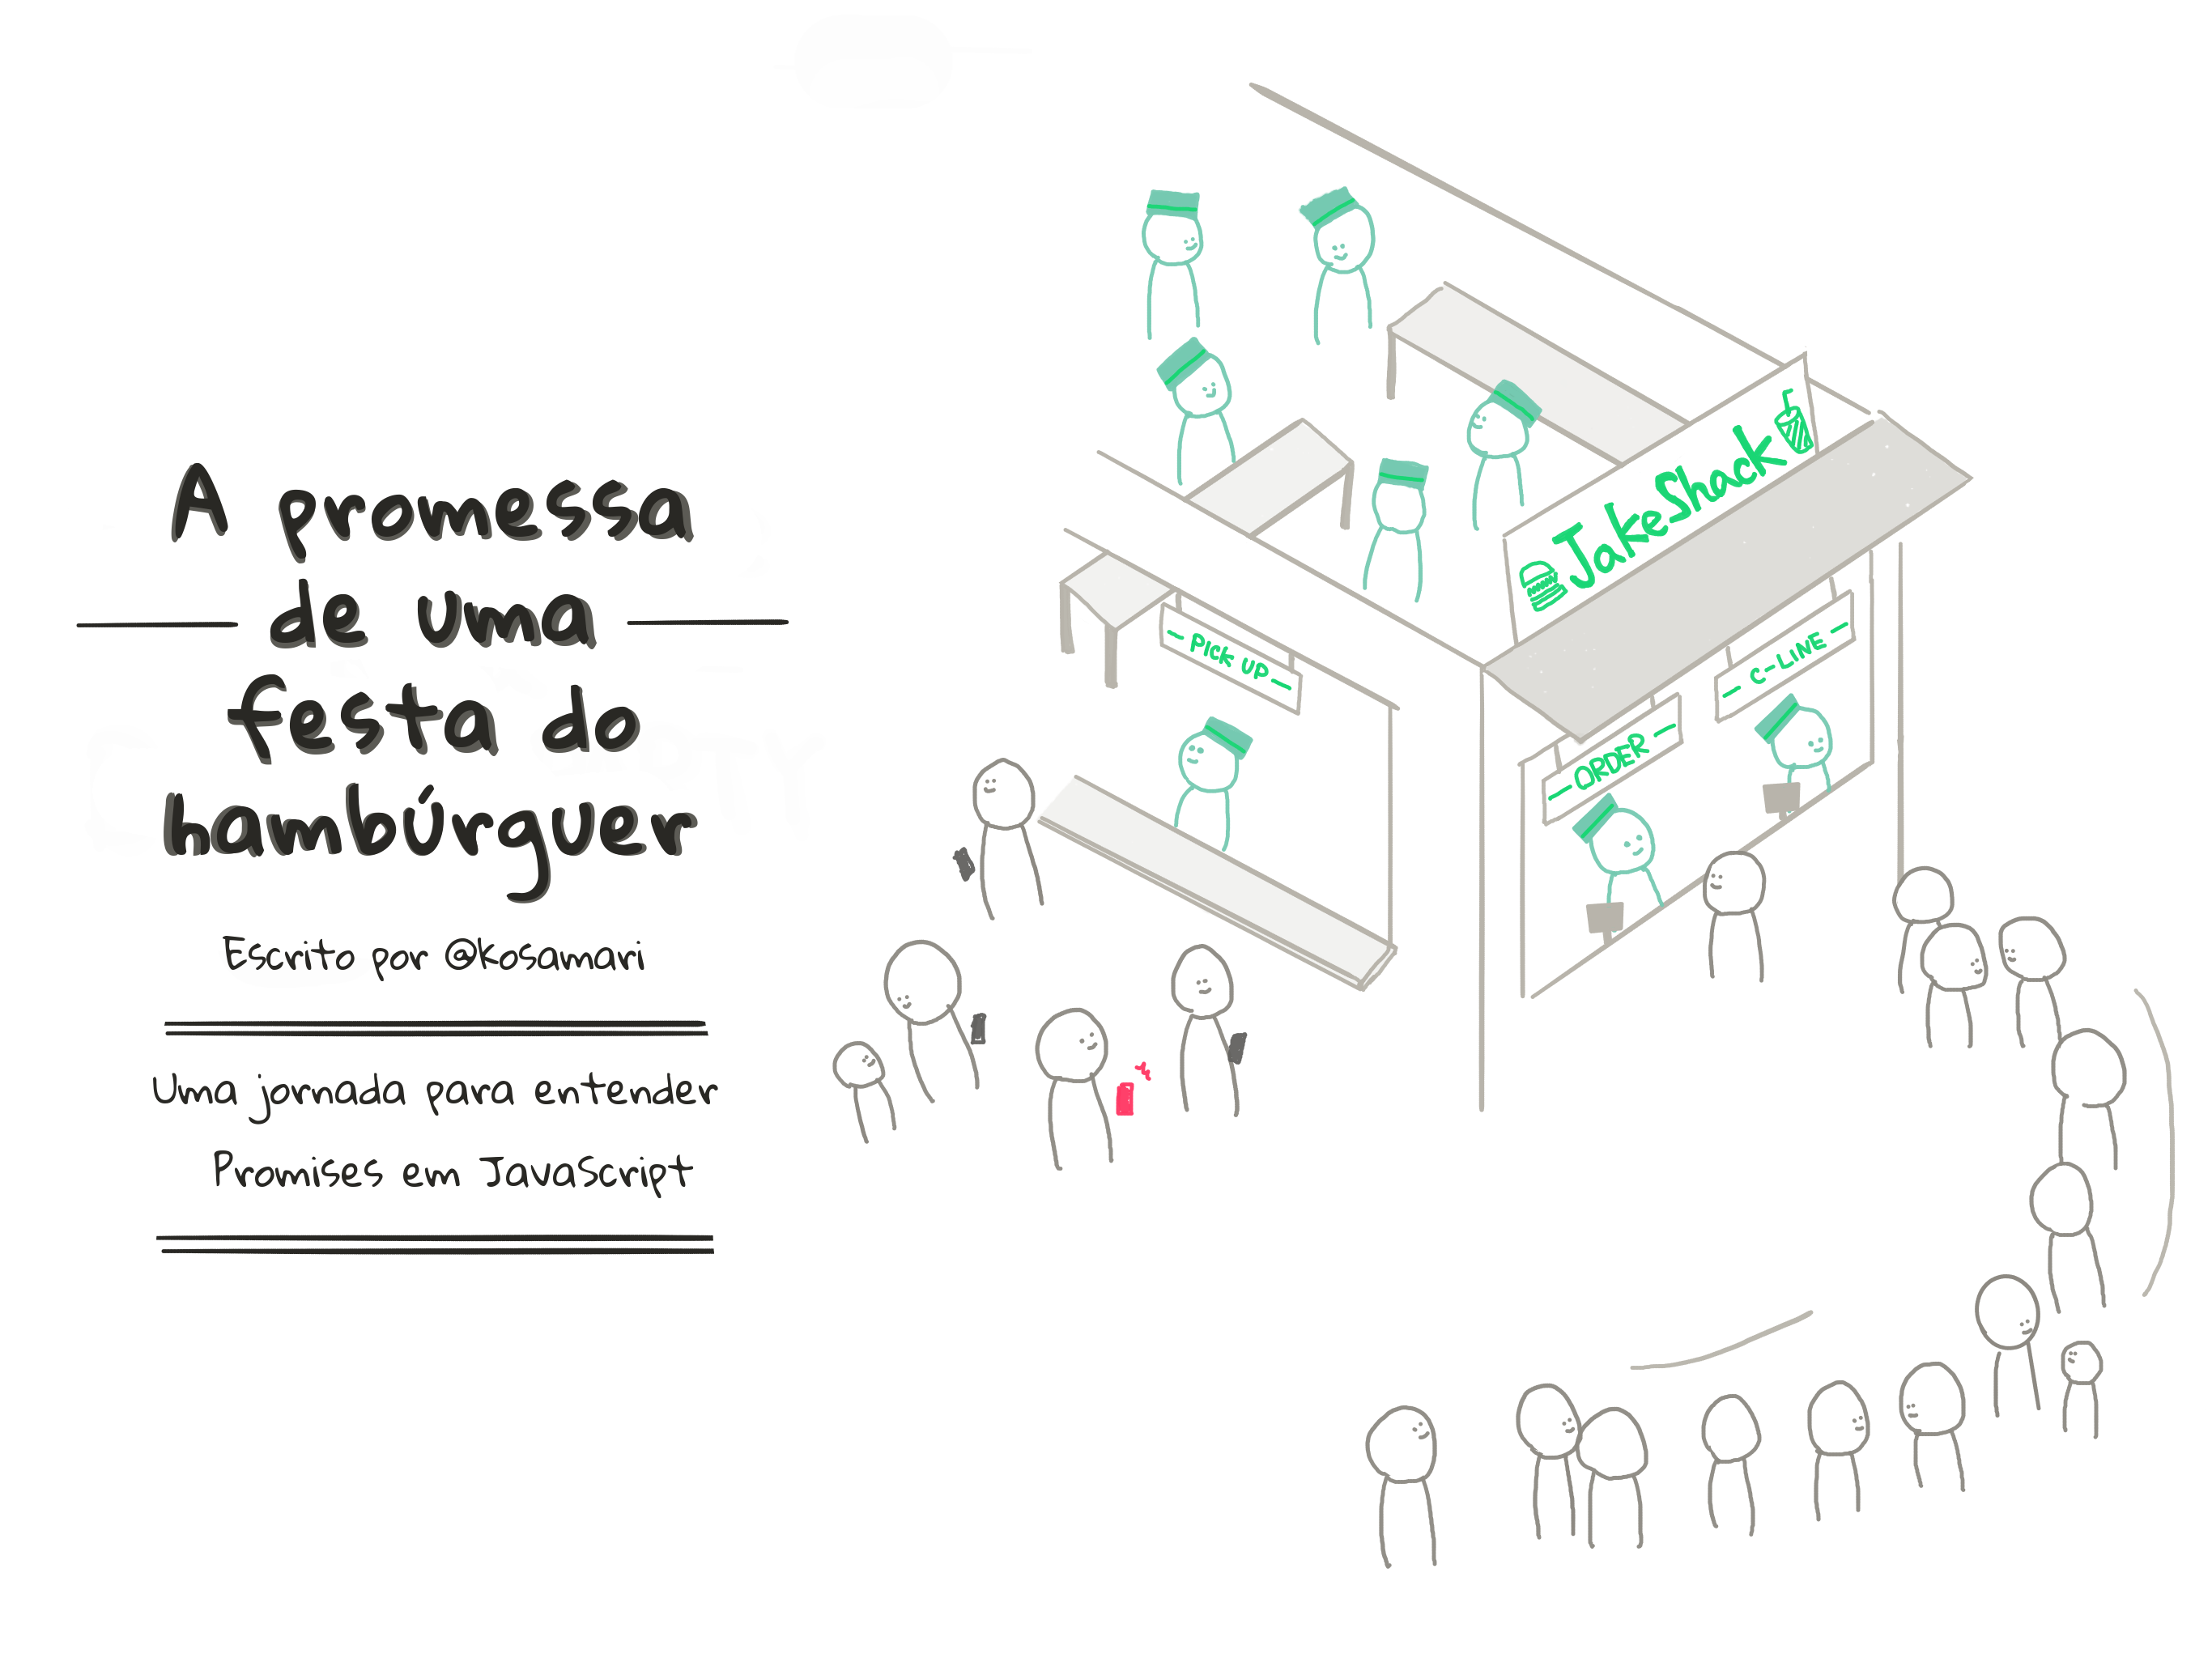 A promessa
de uma
festa do
hambúrguer
Escrito por @kosamari
Uma jornada para entender
Promises em JavaScript
JakeShack
PICK UP
ORDER
C-LINE